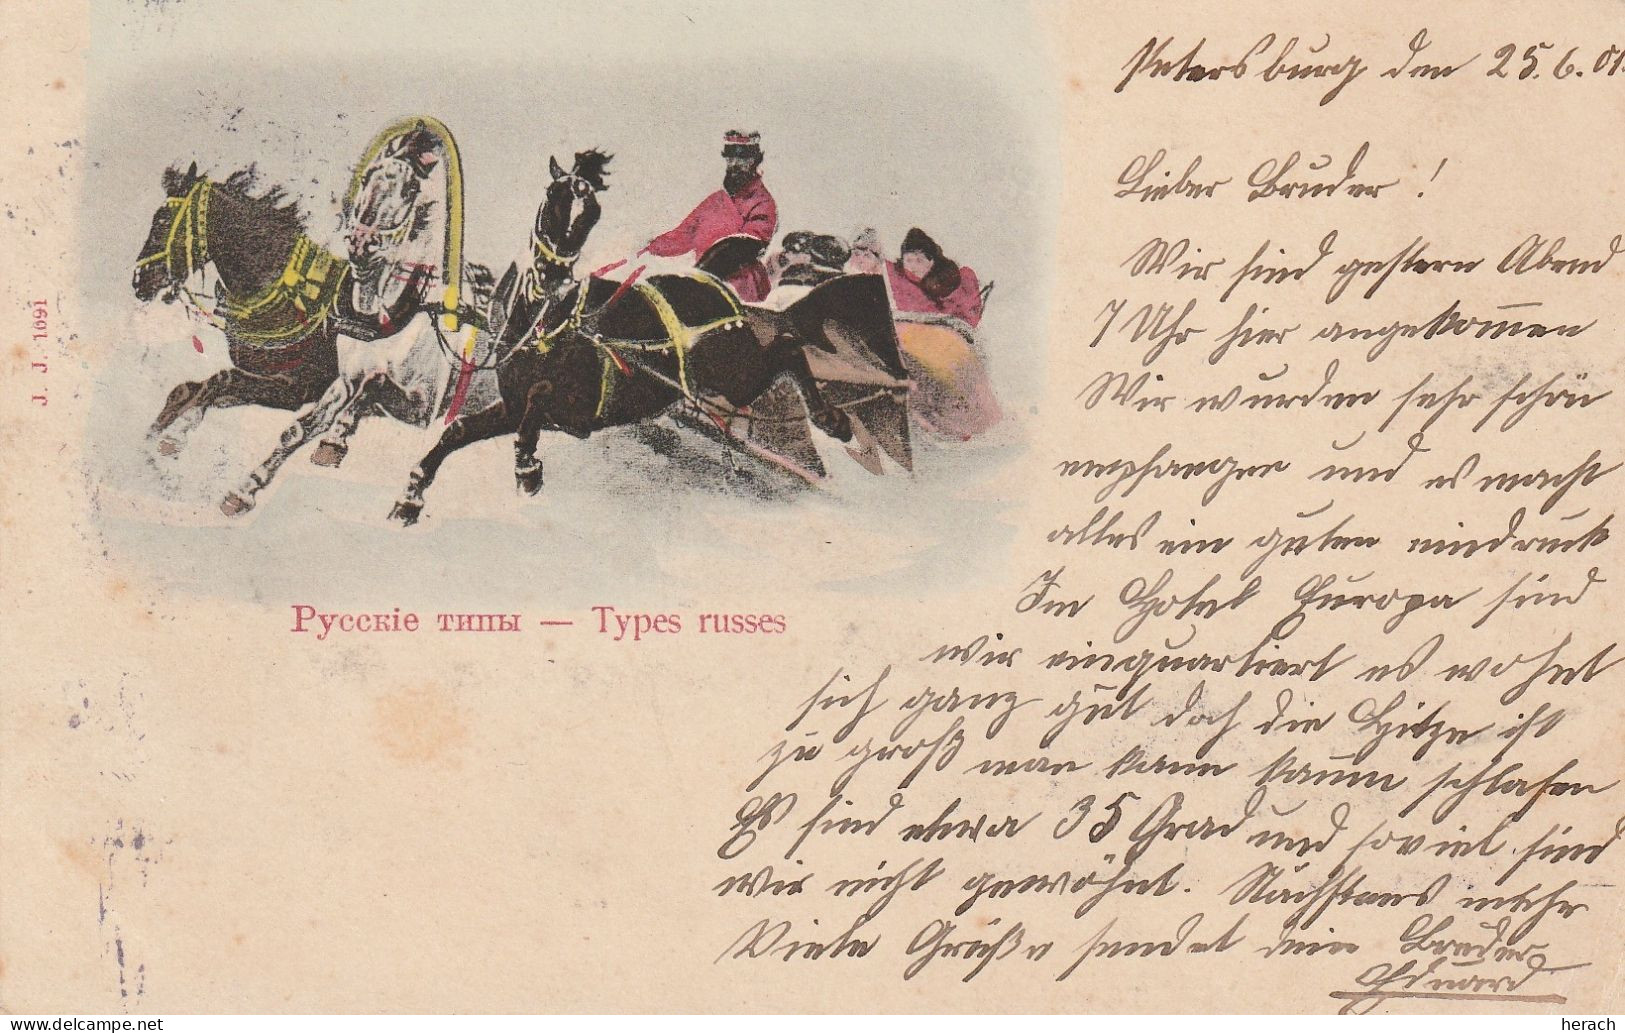 Petersburg den 25.6.01.
Lieber Bruder!
Wir sind gestern Abend
7 Uhr hier angekom̅en
Wir wurden sehr schön
empfangen und es macht
alles ein guten eindruck
Im Hotel Europa sind
wir einquartiert es wohnt
sich ganz gut doch die Hitze ist
zu groß man kann kaum schlafen
Es sind etwa 35 Grad und soviel sind
wir nicht gewöhnt. Nächstens mehr
Viele Grüße sendet dein Bruder
Eduard
J. J. 1091
Русскіе типы — Types russes
herach